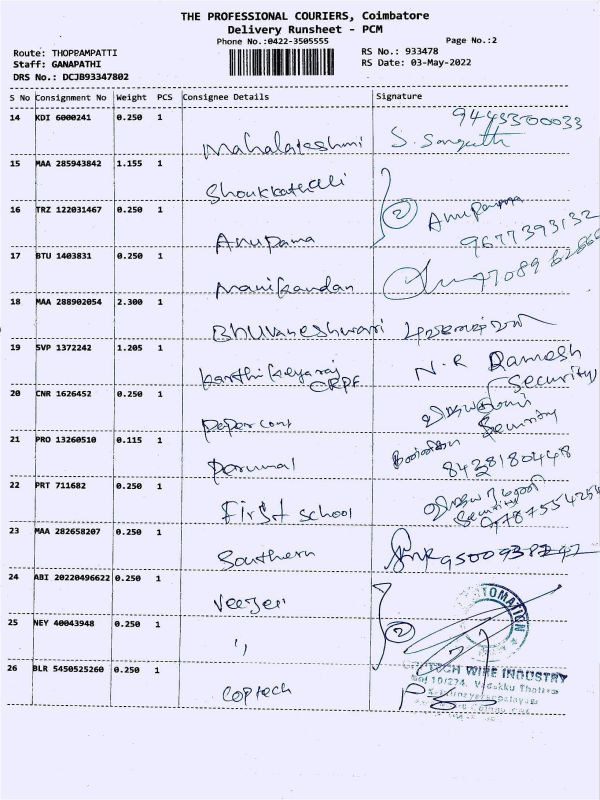 THE PROFESSIONAL COURIERS, Coimbatore
Delivery Runsheet - PCM
Phone No.:0422-3505555
Page No.:2
Route: THOPPAMPATTI
RS No.: 933478
Staff: GANAPATHI
RS Date: 03-May-2022
DRS No.: DCJB93347802
S No Consignment No Weight PCS Consignee Details Signature
14 KDI 6000241 0.250 1 Mahalakshmi 9443300033
15 MAA 285943842 1.155 1 Shoukkathali
16 TRZ 122031467 0.250 1 Anupama (2) Anupama
9677393132
17 BTU 1403831 0.250 1 Manikandan
18 MAA 288902054 2.300 1 Bhuvaneshwari
19 SVP 1372242 1.205 1 Karthikeyaraj N.R Ramesh
CRPF (Security)
20 CNR 1626452 0.250 1 Papercons Security
21 PRO 13260510 0.115 1 Perumal 8428180448
22 PRT 711682 0.250 1 First school Security
23 MAA 282658207 0.250 1 Southern
24 ABI 20220496622 0.250 1 Veezer
25 NEY 40043948 0.250 1 " (2)
26 BLR 5450525260 0.250 1 Coptech
WIRE INDUSTRY